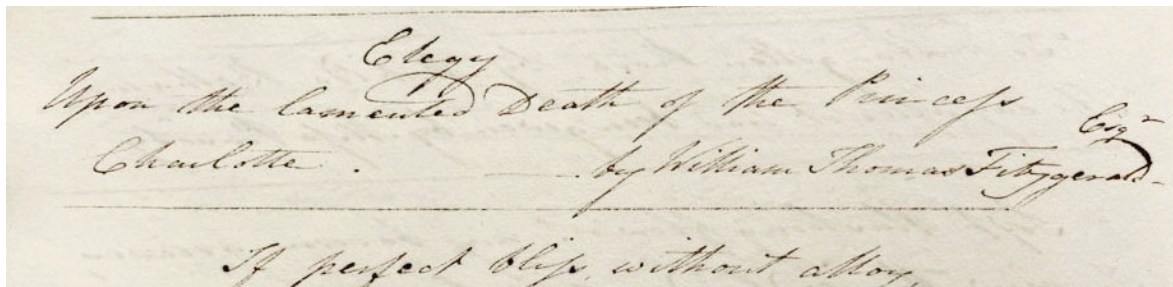 Elegy
Upon the lamented Death of the Princeſs
Charlotte. — by William Thomas Fitzgerald Esqr
If perfect bliſs, without alloy,